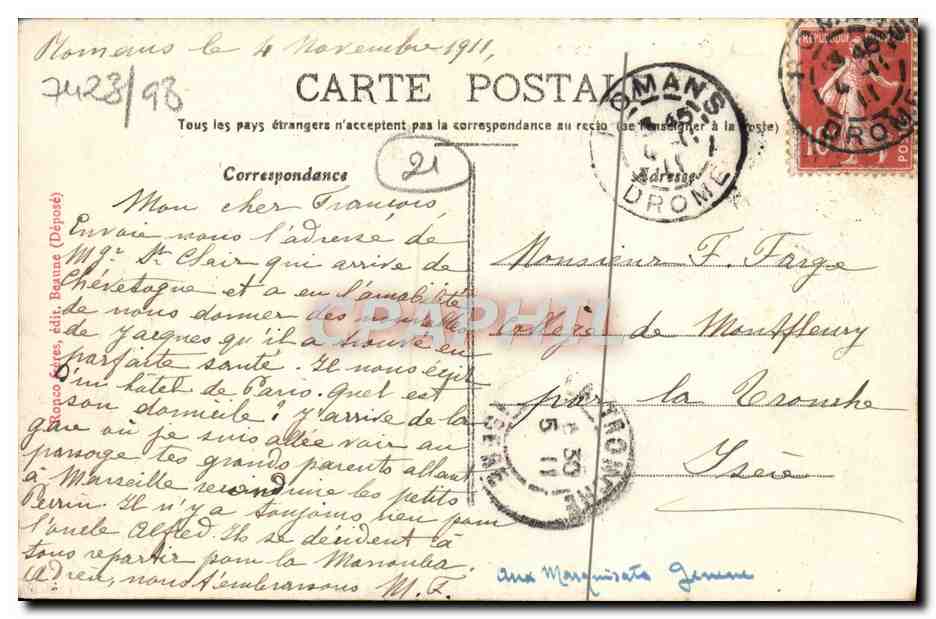 Romans le 4 Novembre 1911,
7423/98
CARTE POSTALE
Tous les pays étrangers n'acceptent pas la correspondance au recto (se renseigner à la Poste)
21
Correspondance
Adresse
Mon cher François,
Envoie nous l'adresse de
Mgr St Clair qui arrive de
Chévetogne et a eu l'amabilité
de nous donner des nouvelles
de Jacques qu'il a trouvé en
parfaite santé. Il nous écrit
d'un hôtel de Paris. Quel est
son domicile? J'arrive de la
gare où je suis allée voir au
passage tes grands parents allant
à Marseille reconduire les petits
Perrin. Il n'y a toujours rien pour
l'oncle Alfred. Ils se décident à
tous repartir pour la Manouba.
nous t'embrassons M. F.
Monsieur F. Farge
Collège de Montfleury
par la Tronche
Isère
Aux Marquisats
Ronco frères, édit. Beaune (Déposé)
ROMANS
45
4 - 11
11
DROME
REPUBLIQUE
10
POSTES
45
11
DROME
TRONCHE
6 30
5 11
ISERE
CPAPHIL